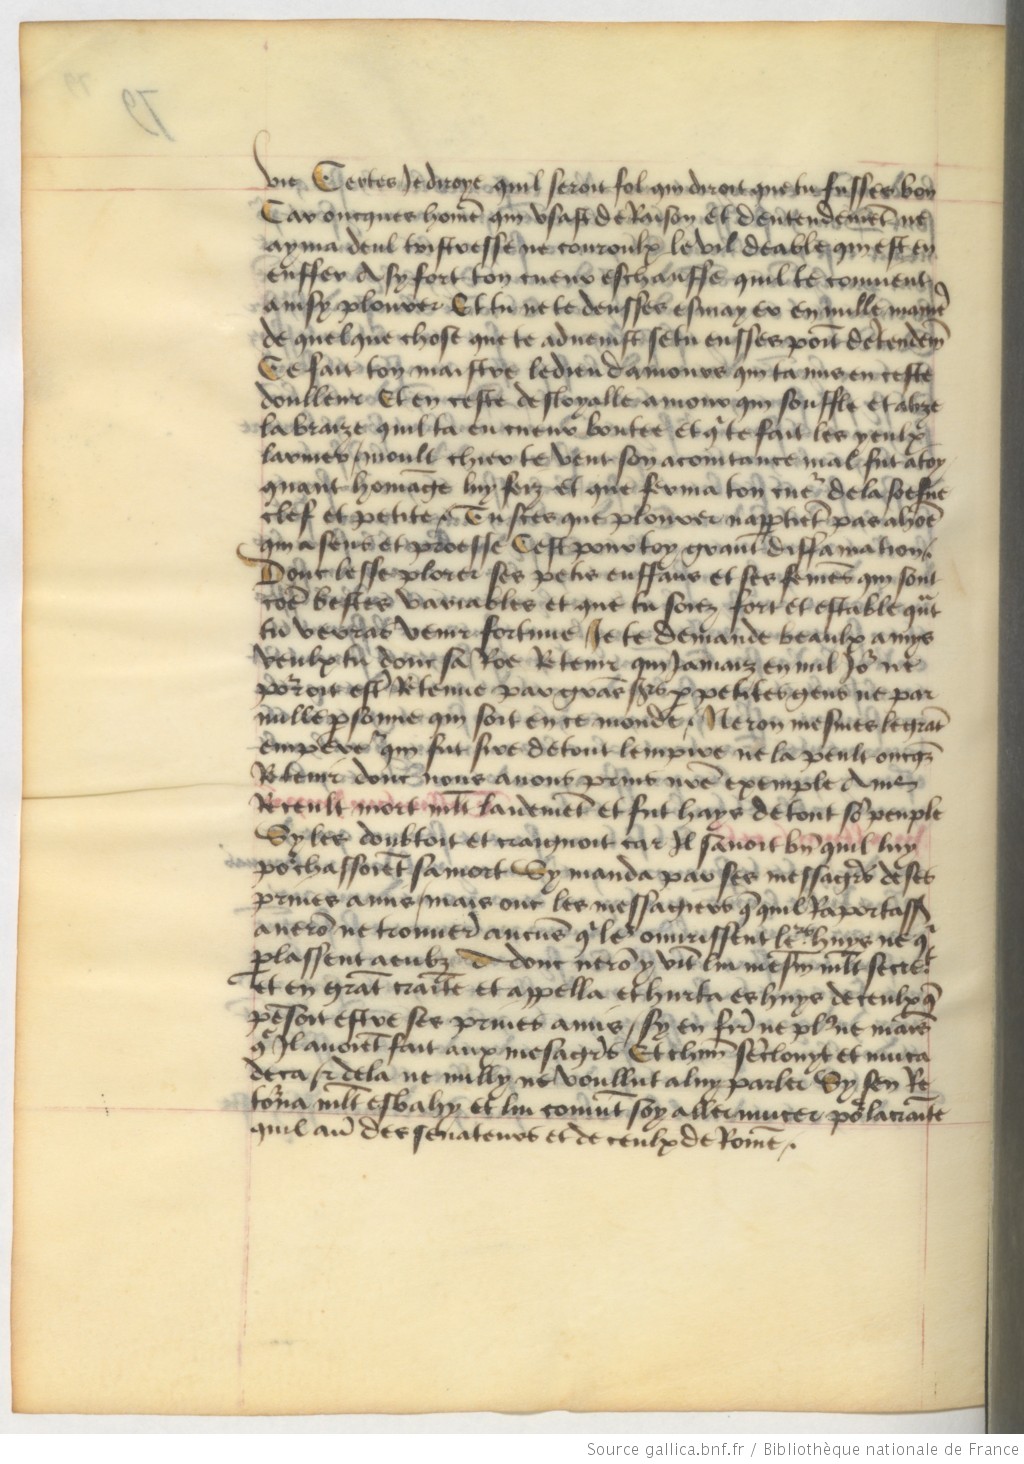 79
vie Certes Je diroye quil seroit fol qui diroit que tu fusses bon
Car oncques home qui usast de Raison et dentendemet ne
ayma deul tristresse ne couroulx le vil deable qui est en
enffer A sy fort ton cueur eschauffe quil te convient
ainsy plourer Et tu ne te deusses esmayer en nulle manie
de quelque chose que te advenist se tu eusses point dentendem
Ce fait ton maistre le dieu damours qui ta mis en ceste
doulleur Et en ceste desloyalle amour qui souffle et atize
la braize quil ta en cueur boutee et q te fait les yeulx
larmer / moult chier te vent son acointance mal fut a toy
quant homage luy feiz et que ferma ton cue de la soesue
clef et petite Tu sces que plourer napptiet pas a hoe
qui a sens et proesse Cest pour toy grant diffamation /.
Donc lesse plorer ses petis enffans et ses femes qui sont
coe bestes variables et que tu soiez fort et estable qnt
tu verras venir fortune Je te demande beaulx amys
Veulx tu donc sa Roe Retenir qui Jamaiz en nul Jo ne
porroit est Retenue par grans gens p petites gens ne par
nulle psonne qui soit en ce monde / Neron mesmes le grant
empere qui fut sire de tout lempire ne la peult oncqz
Retenir donc nous avons prins nre exemple A mes
Receult mort mlt laidemet et fut hays de tout so peuple
Sy les doubtoit et craignoit car Il savoit bn quil luy
pochassoiet sa mort Sy manda par ses messagrs de ses
prives amis / mais onc les messagiers q quil Raportass
a nero ne trouver aucus q le ouvrissent les huys ne q
plassent a eulz donc nero y vit lui mesm mlt secre
et en grat crainte et appella et hurta es huys de ceulx q
pesoit estre ses prives amis / sy en fir ne pl ne mains
q Il avoiet fait aux mesagrs Et chun se clouyt et muca
deca & dela ne nully ne voullut a luy parler Sy sen Re
torna mlt esbahy et lui convit soy aller mucer po la crainte
quil au des senateurs et de ceulx de Rome /.
Source gallica.bnf.fr / Bibliothèque nationale de France